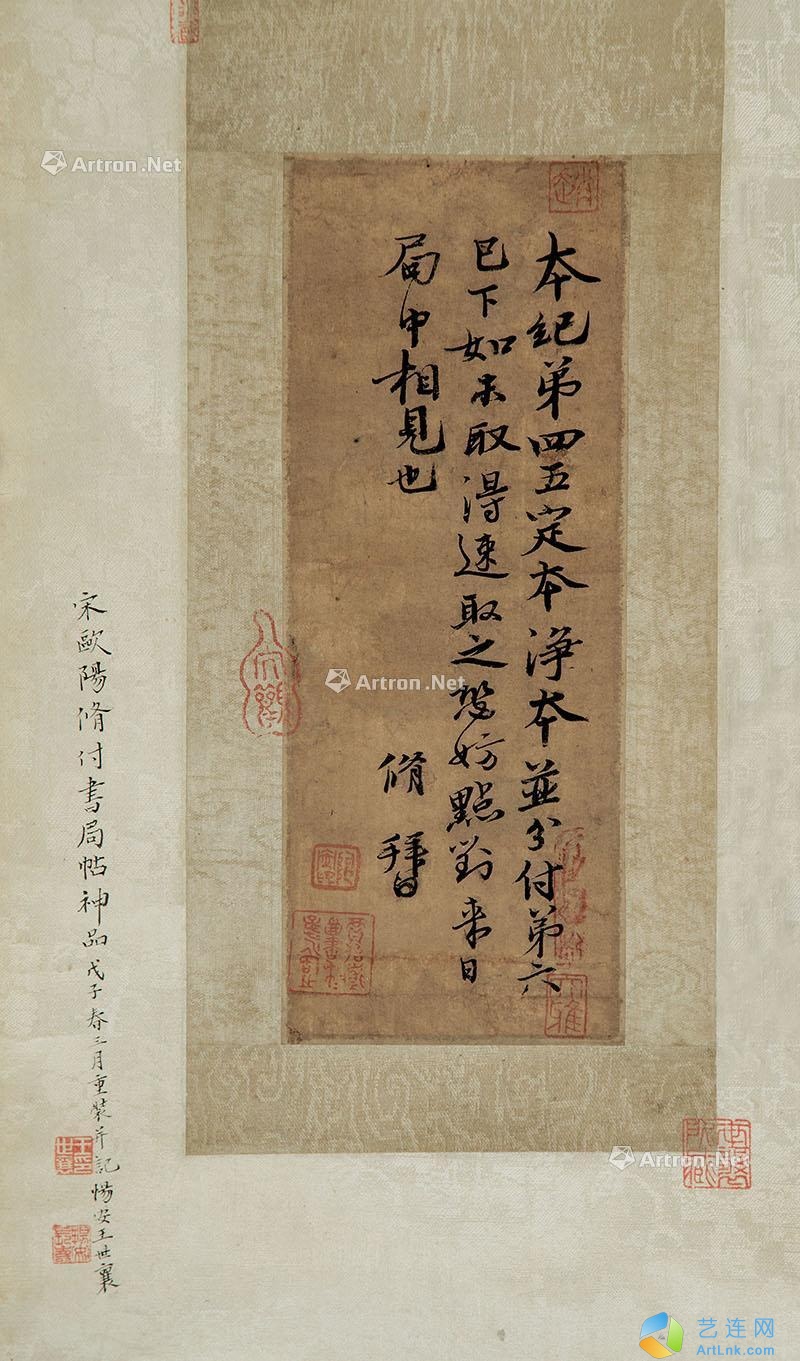 本紀第四五定本淨本並分付第六
已下如未取得速取之恐妨點對来日
局中相見也
脩 拜白
宋歐陽脩付書局帖神品戊子春三月重裝并記暢安王世襄
Artron.Net
Artron.Net
Artron.Net
艺连网
ArtLnk.com